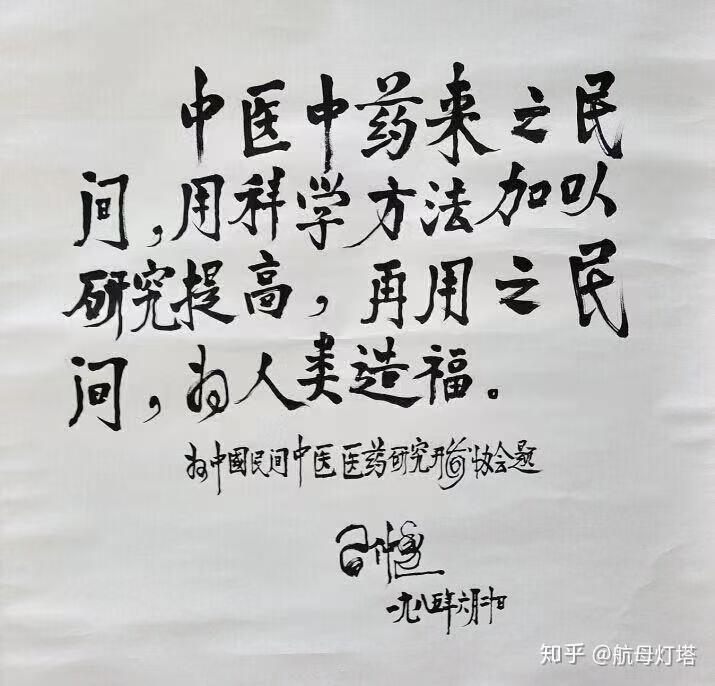 中医中药来之民
间，用科学方法加以
研究提高，再用之民
间，为人类造福。
为中國民间中医医药研究开发协会题
习仲勋
一九八五年六月二十日
知乎 @航母灯塔